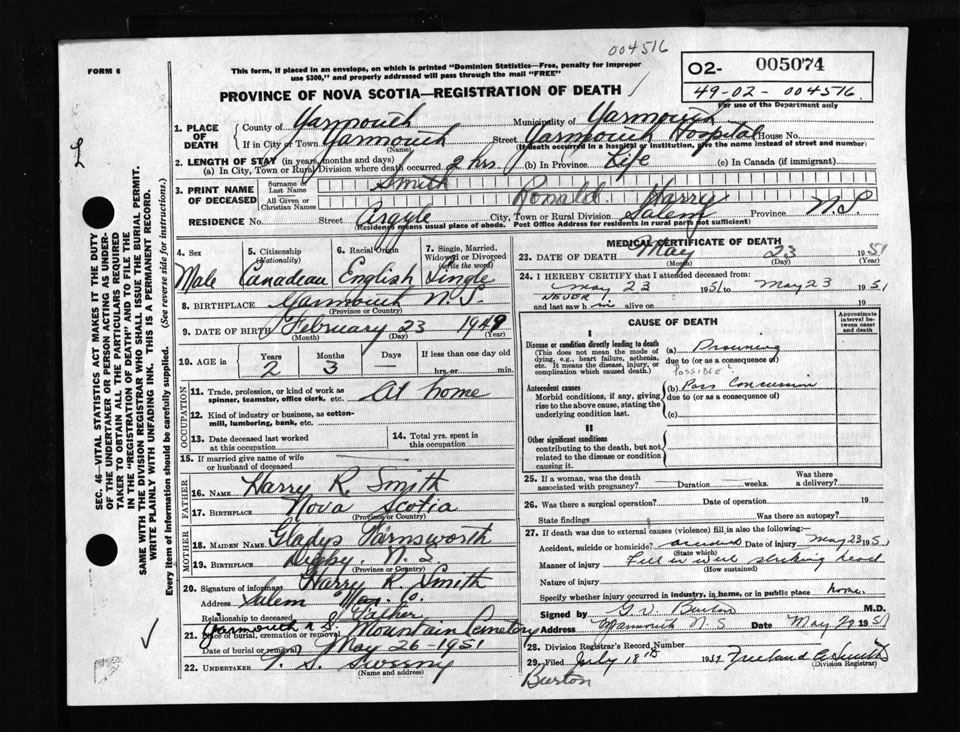 004516
FORM 6
This form, if placed in an envelope, on which is printed "Dominion Statistics—Free, penalty for improper
use $300," and properly addressed will pass through the mail "FREE"
02- 005074
49-02-004516.
For use of the Department only
PROVINCE OF NOVA SCOTIA—REGISTRATION OF DEATH
1. PLACE OF DEATH County of Yarmouth Municipality of Yarmouth
If in City or Town Yarmouth (Name) Street Yarmouth Hospital House No.
(If death occurred in a hospital or institution, give the name instead of street and number)
2. LENGTH OF STAY (in years, months and days)
(a) In City, Town or Rural Division where death occurred 2 hrs. (b) In Province Life (c) In Canada (if immigrant)
3. PRINT NAME OF DECEASED Surname or Last Name Smith
All Given or Christian Names Ronald Harry
RESIDENCE No. Street Argyle City, Town or Rural Division Salem Province N.S.
(Residence means usual place of abode. Post Office Address for residents in rural parts not sufficient)
4. Sex 5. Citizenship (Nationality) 6. Racial Origin 7. Single, Married, Widowed or Divorced (Write the word)
Male Canadean English Single
8. BIRTHPLACE Yarmouth N.S.
(Province or Country)
9. DATE OF BIRTH February 23 1949
(Month) (Day) (Year)
10. AGE in Years Months Days If less than one day old
2 3 — hrs. or min.
OCCUPATION
11. Trade, profession, or kind of work as spinner, teamster, office clerk, etc. At home
12. Kind of industry or business, as cotton-mill, lumbering, bank, etc.
13. Date deceased last worked at this occupation
14. Total yrs. spent in this occupation
15. If married give name of wife or husband of deceased
FATHER
16. NAME Harry R. Smith
17. BIRTHPLACE Nova Scotia
(Province or Country)
MOTHER
18. MAIDEN NAME Gladys
19. BIRTHPLACE Digby N.S.
(Province or Country)
20. Signature of informant Harry R. Smith
Address Salem Yar. Co.
Relationship to deceased Father
Yarmouth N.S. Mountain Cemetery
21. Place of burial, cremation or removal
Date of burial or removal May 26-1951
22. UNDERTAKER V. S. Sweeny
MEDICAL CERTIFICATE OF DEATH
23. DATE OF DEATH May 23 1951
(Month) (Day) (Year)
24. I HEREBY CERTIFY that I attended deceased from:
May 23 1951 to May 23 1951
NEVER
and last saw h im alive on 19
CAUSE OF DEATH
Approximate interval between onset and death
I
Disease or condition directly leading to death
(This does not mean the mode of dying, e.g., heart failure, asthenia, etc. It means the disease, injury, or complication which caused death.)
(a) Drowning
due to (or as a consequence of)
POSSIBLE?
Antecedent causes
Morbid conditions, if any, giving rise to the above cause, stating the underlying condition last.
(b) Poss Concussion
due to (or as a consequence of)
(c)
II
Other significant conditions
contributing to the death, but not related to the disease or condition causing it.
25. If a woman, was the death associated with pregnancy? Duration weeks. Was there a delivery?
26. Was there a surgical operation? Date of operation 19
State findings Was there an autopsy?
27. If death was due to external causes (violence) fill in also the following:—
Accident, suicide or homicide? accident Date of injury May 23 1951
(State which)
Manner of injury Fell in well striking head
(How sustained)
Nature of injury
Specify whether injury occurred in industry, in home, or in public place home.
Signed by G. V. Burton M.D.
Address Yarmouth N.S Date May 29 1951
28. Division Registrar's Record Number
29. Filed July 18th 1951 Freeland C. Smith
(Division Registrar)
Burton
SEC. 46—VITAL STATISTICS ACT MAKES IT THE DUTY
OF THE UNDERTAKER OR PERSON ACTING AS UNDER-
TAKER TO OBTAIN ALL THE PARTICULARS REQUIRED
IN THE "REGISTRATION OF DEATH" AND TO FILE THE
SAME WITH THE DIVISION REGISTRAR WHO SHALL ISSUE THE BURIAL PERMIT.
WRITE PLAINLY WITH UNFADING INK. THIS IS A PERMANENT RECORD.
Every item of information should be carefully supplied. (See reverse side for instructions.)